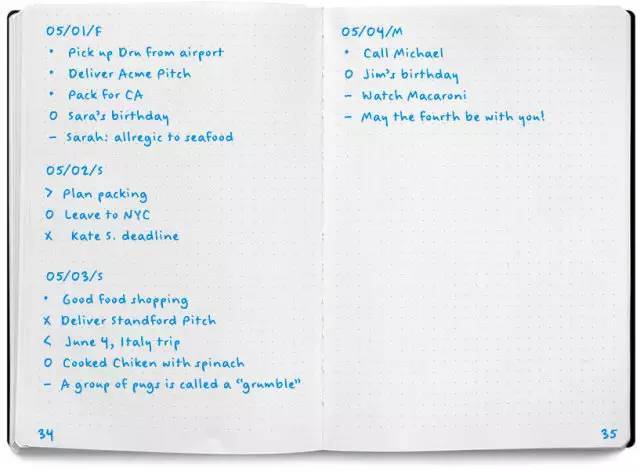 05/01/F
• Pick up Dru from airport
• Deliver Acme Pitch
• Pack for CA
O Sara's birthday
– Sarah: allregic to seafood
05/02/S
> Plan packing
O Leave to NYC
x Kate S. deadline
05/03/S
• Good food shopping
x Deliver Standford Pitch
< June 4, Italy trip
O Cooked Chiken with spinach
– A group of pugs is called a "grumble"
34
05/04/M
• Call Michael
O Jim's birthday
– Watch Macaroni
– May the fourth be with you!
35